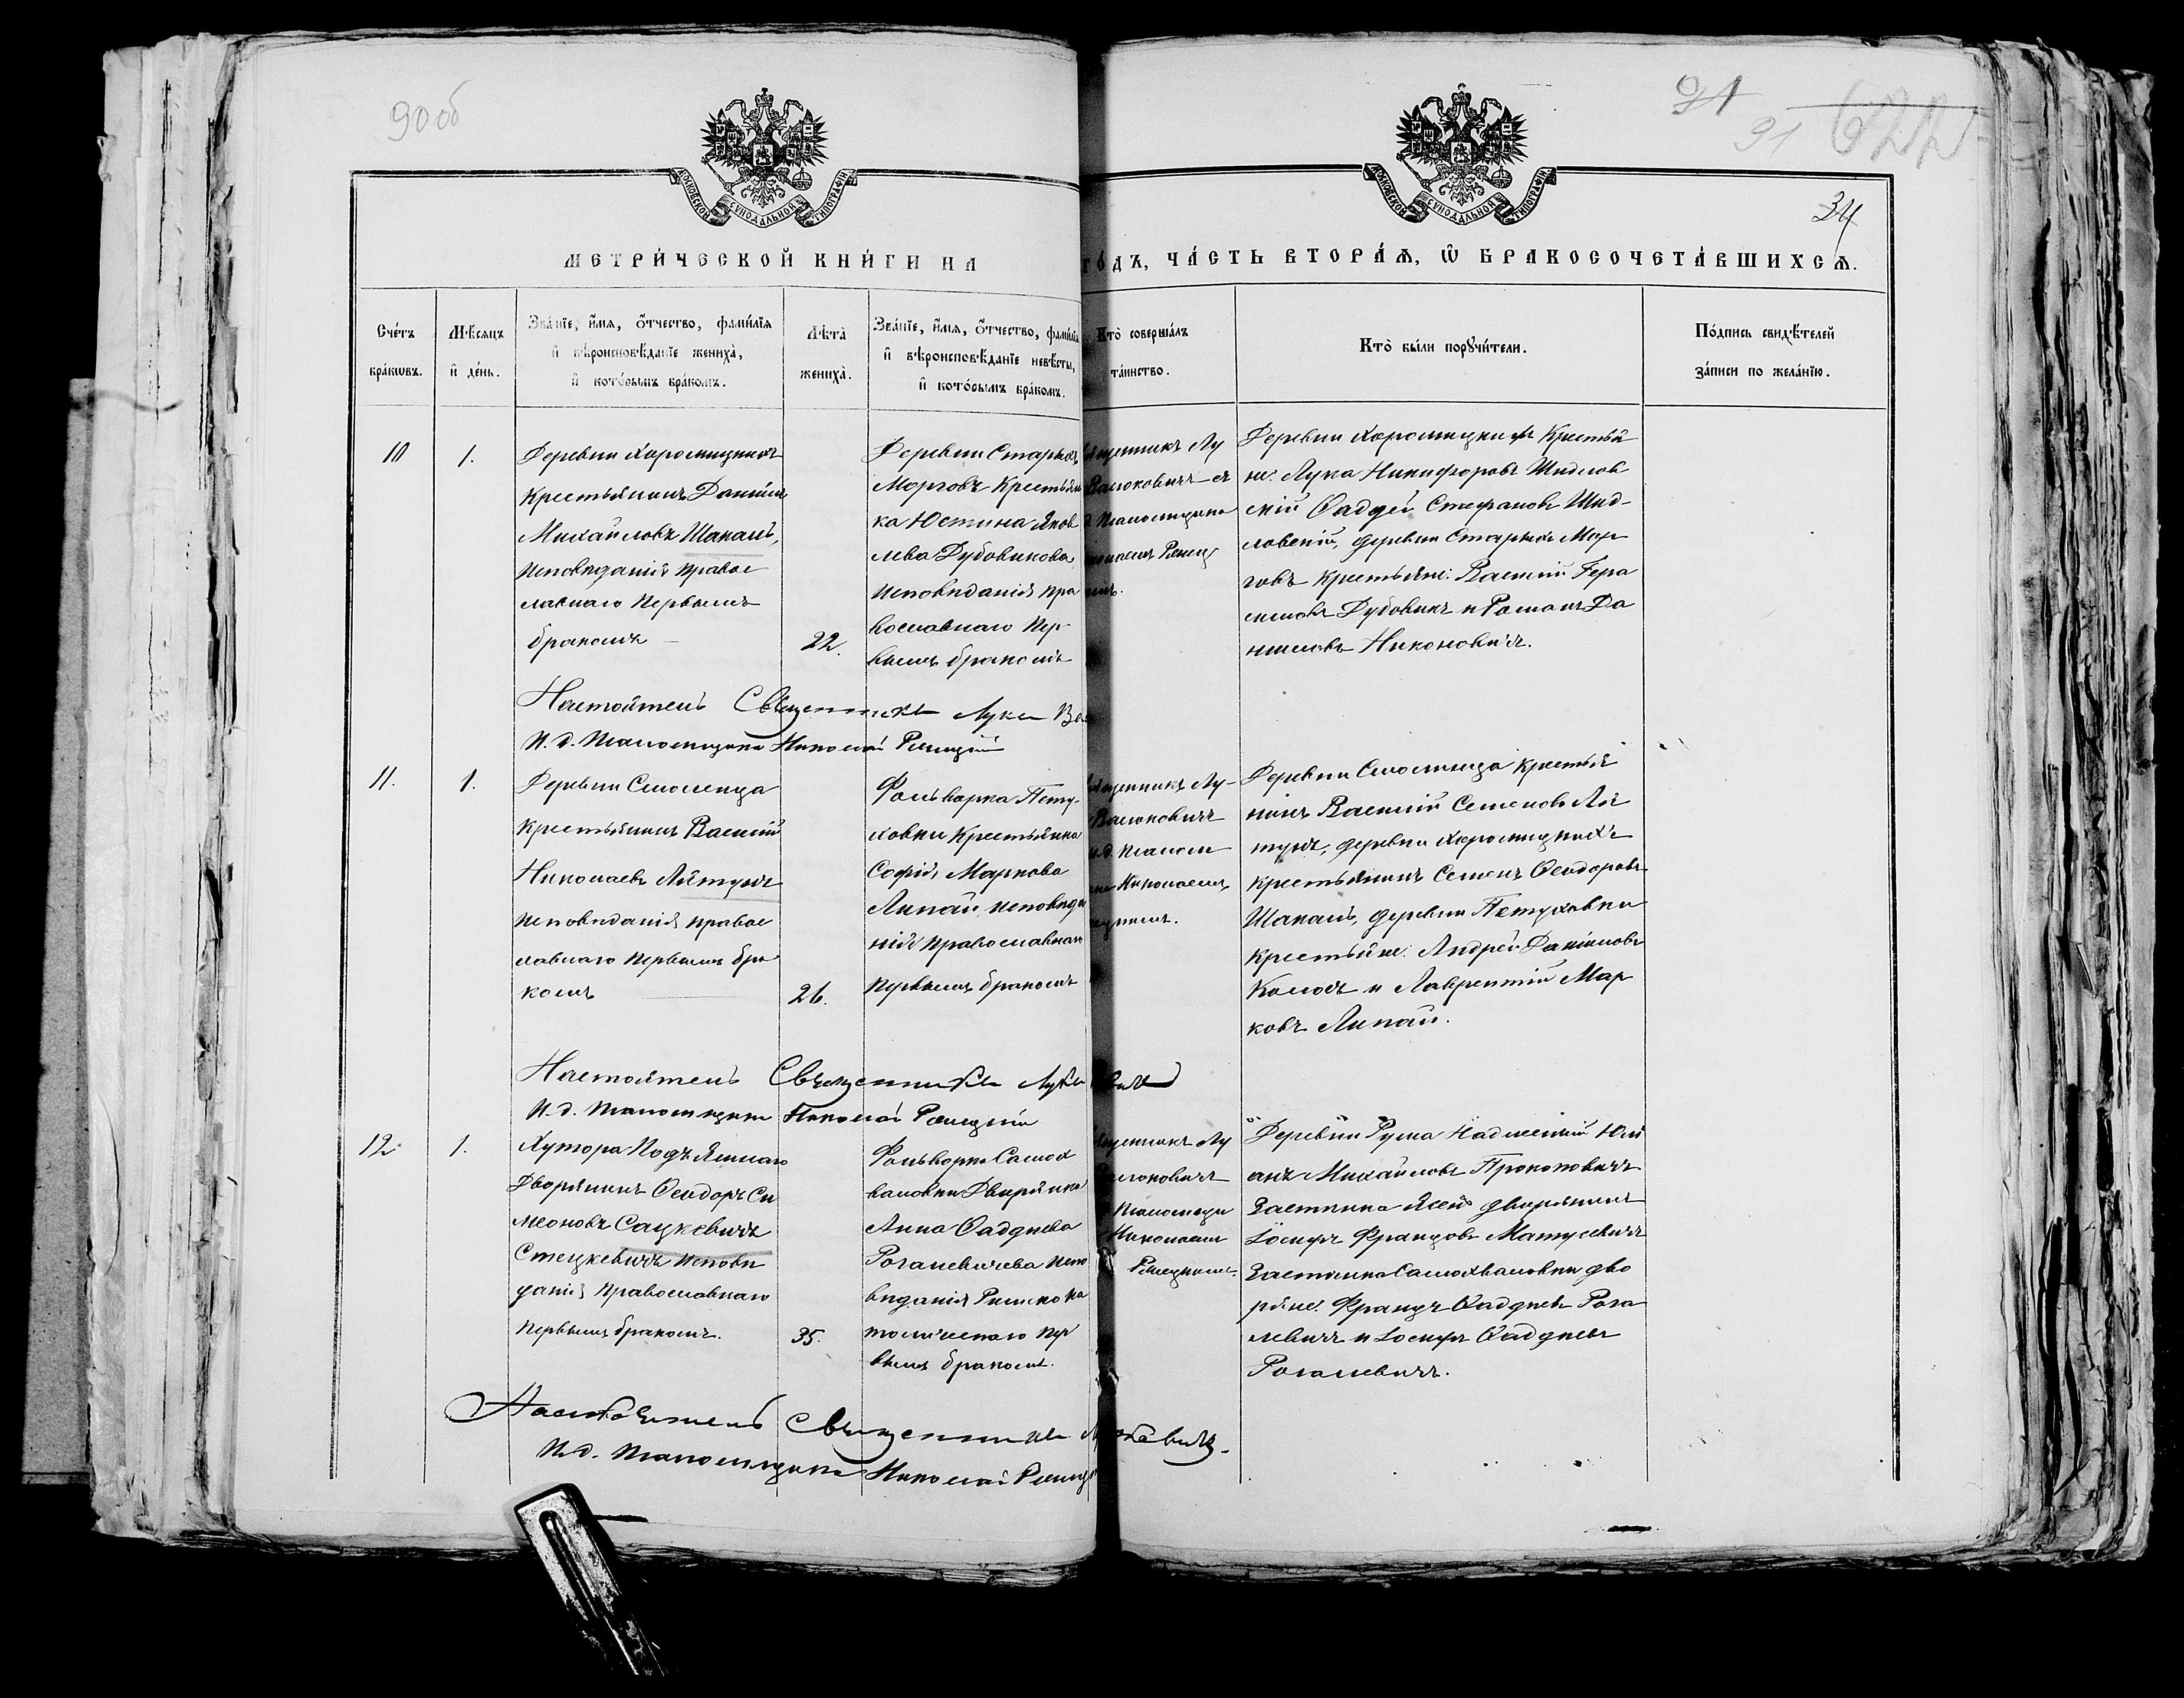 90 об
91
91
622
34
МОСКОВСКОЙ СѴНОДАЛЬНОЙ ТИПОГРАФІИ
МОСКОВСКОЙ СѴНОДАЛЬНОЙ ТИПОГРАФІИ
МЕТРИ́ЧЕСКОЙ КНИ́ГИ НА
ГО́ДЪ, ЧА́СТЬ ВТОРА́Ѧ, Ѡ҆ БРАКОСОЧЕТА́ВШИХСѦ.
Сче́тъ
бра́кѡвъ.
Мѣ́сѧцъ
и҆ де́нь.
Зва́нїе, и҆́мѧ, ѻ҆́тчество, фами́лїѧ
и҆ вѣроисповѣ́данїе жениха̀,
и҆ кото́рымъ бра́комъ.
Лѣ́та
жениха̀.
Зва́нїе, и҆́мѧ, ѻ҆́тчество, фами́лїѧ
и҆ вѣроисповѣ́данїе невѣ́сты,
и҆ кото́рымъ бра́комъ.
Кто̀ соверша́лъ
та́инство.
Кто̀ бы́ли порꙋчи́тели.
По́дпись свидѣ́телей
за́писи по жела́нїю.
10
1.
Деревни Хоромицкихъ
Крестьянинъ Даніилъ
Михайловъ Шапаль,
исповѣданія правос
лавнаго первымъ
бракомъ
22.
Деревни Старыхъ
Морговъ Крестьян
ка Юстина Яков
лева Дубовикова
исповѣданія пра
вославнаго пер
вымъ бракомъ
щенникъ Лу
Валюковичъ съ
Псаломщико
Ре
Деревни Хоромицкихъ Крестья
не: Лука Никифоровъ Шидлов
скій Ѳаддей Стефановъ Шид-
ловскій, деревни Старыхъ Мор
говъ крестьяне: Василій Гера
симовъ Дубовикъ и Романъ Да
ниловъ Никоновичъ.
Настоятель Священникъ Лука
И. д. Псаломщика Николай
11.
1.
Деревни
Крестьянинъ Василій
Николаевъ Лятунъ
исповѣданія правос
лавнаго первымъ бра
комъ
26.
Фольварка Пету-
ховки Крестьянка
Софія Маркова
Липай исповѣда
нія православнаго
первымъ бракомъ
щенникъ Лу-
Валюковичъ
и.д. псалом
Николаемъ
Деревни крестья
нинъ Василій Семеновъ Ля
тунъ, деревни Хоромицкихъ
крестьянинъ Семенъ Ѳеодоровъ
Шапаль, деревни Петуховки
крестьяне: Андрей Даніиловъ
и Лаврентій Мар
ковъ Липай.
Настоятель Священникъ Лука
И. д. Псаломщика Николай
12
1.
Хутора Подъ
Дворянинъ Ѳеодоръ Си
меоновъ Сацкевичъ
Стецкевичъ исповѣ
данія Православнаго
первымъ бракомъ.
35.
Фольварка Самох
валовки Дворянка
Анна Ѳаддѣева
Рогалевичева испо
вѣданія Римско ка
толическаго пер
вымъ бракомъ.
щенникъ Лу
люковичъ
Псаломщи
Николаемъ
Деревни Рума Юлі
анъ Михайловъ Прокоповичъ
Застѣнка дворянинъ
Іосифъ Францовъ Матусевичъ
Застѣнка Самохваловки дво
ряне: Францъ Ѳаддѣевъ Рога
левичъ и Іосифъ Ѳаддѣевъ
Рогалевичъ.
Настоятель Священникъ
И.д. Псаломщика Николай